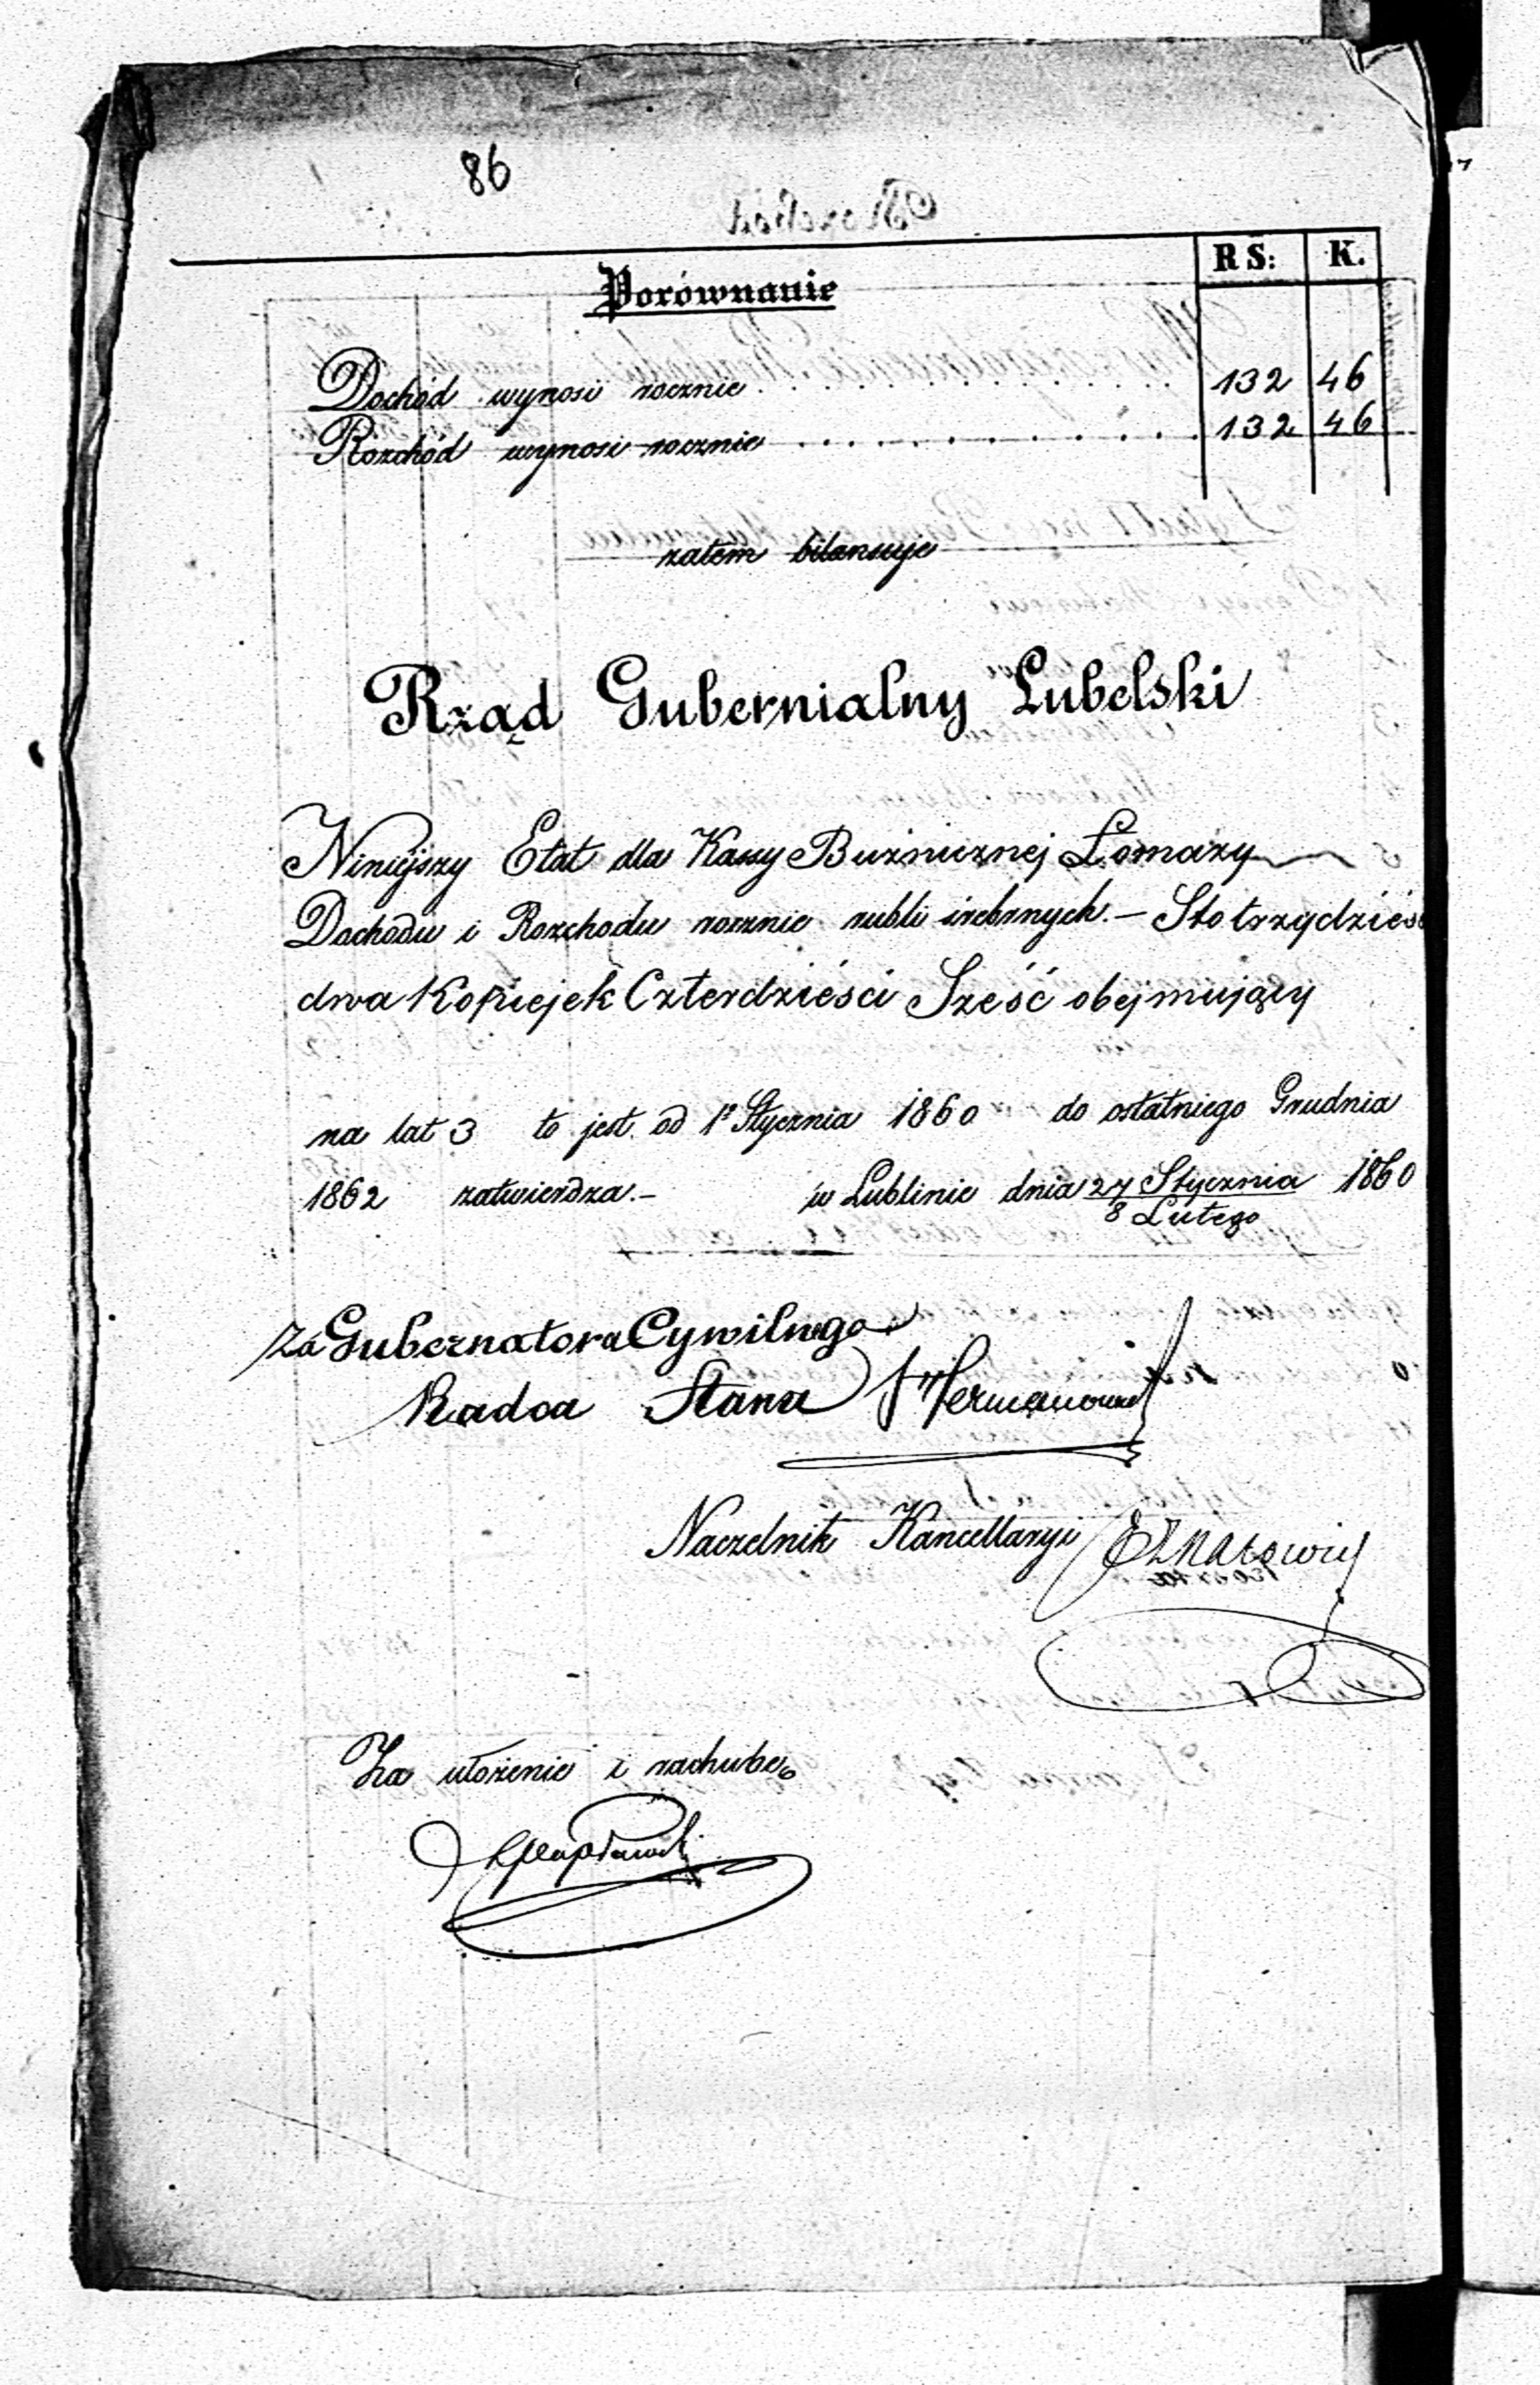 86
RS: K.
Porównanie
Dochód wynosi rocznie . . . . . . . . . . 132 46
Rozchód wynosi rocznie . . . . . . . . . . 132 46
zatem bilansuje
Rząd Gubernialny Lubelski
Niniejszy Etat dla Kassy Bużnicznej Łomazy
Dochodu i Rozchodu rocznie rubli srebrnych. — Sto trzydzieści
dwa Kopiejek Czterdzieści Sześć obejmujący
na lat 3 to jest. od 1º Stycznia 1860 do ostatniego Grudnia
1862 zatwierdza. — w Lublinie dnia 27 Stycznia 1860
8 Lutego
Za Gubernatora Cywilnego
Radca Stanu
Naczelnik Kancellaryi
Za ułożenie i rachubę